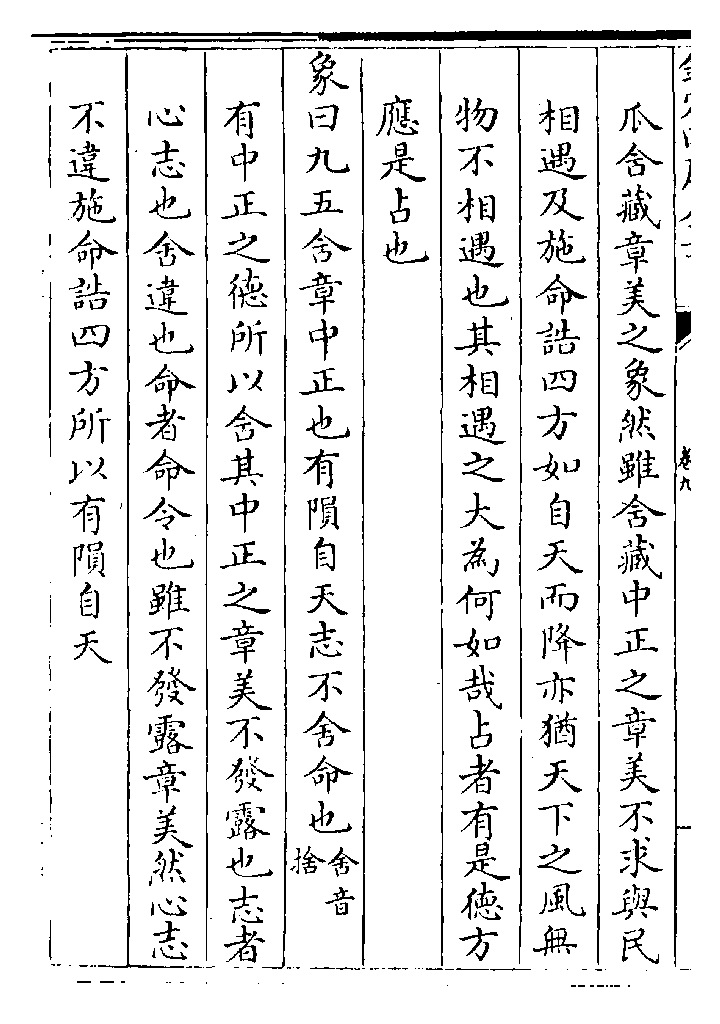 卷九
瓜含藏章美之象然雖含藏中正之章美不求與民
相遇及施命誥四方如自天而降亦猶天下之風無
物不相遇也其相遇之大為何如哉占者有是德方
應是占也
象曰九五含章中正也有隕自天志不舍命也舍音捨
有中正之德所以含其中正之章美不發露也志者
心志也舍違也命者命令也雖不發露章美然心志
不違施命誥四方所以有隕自天